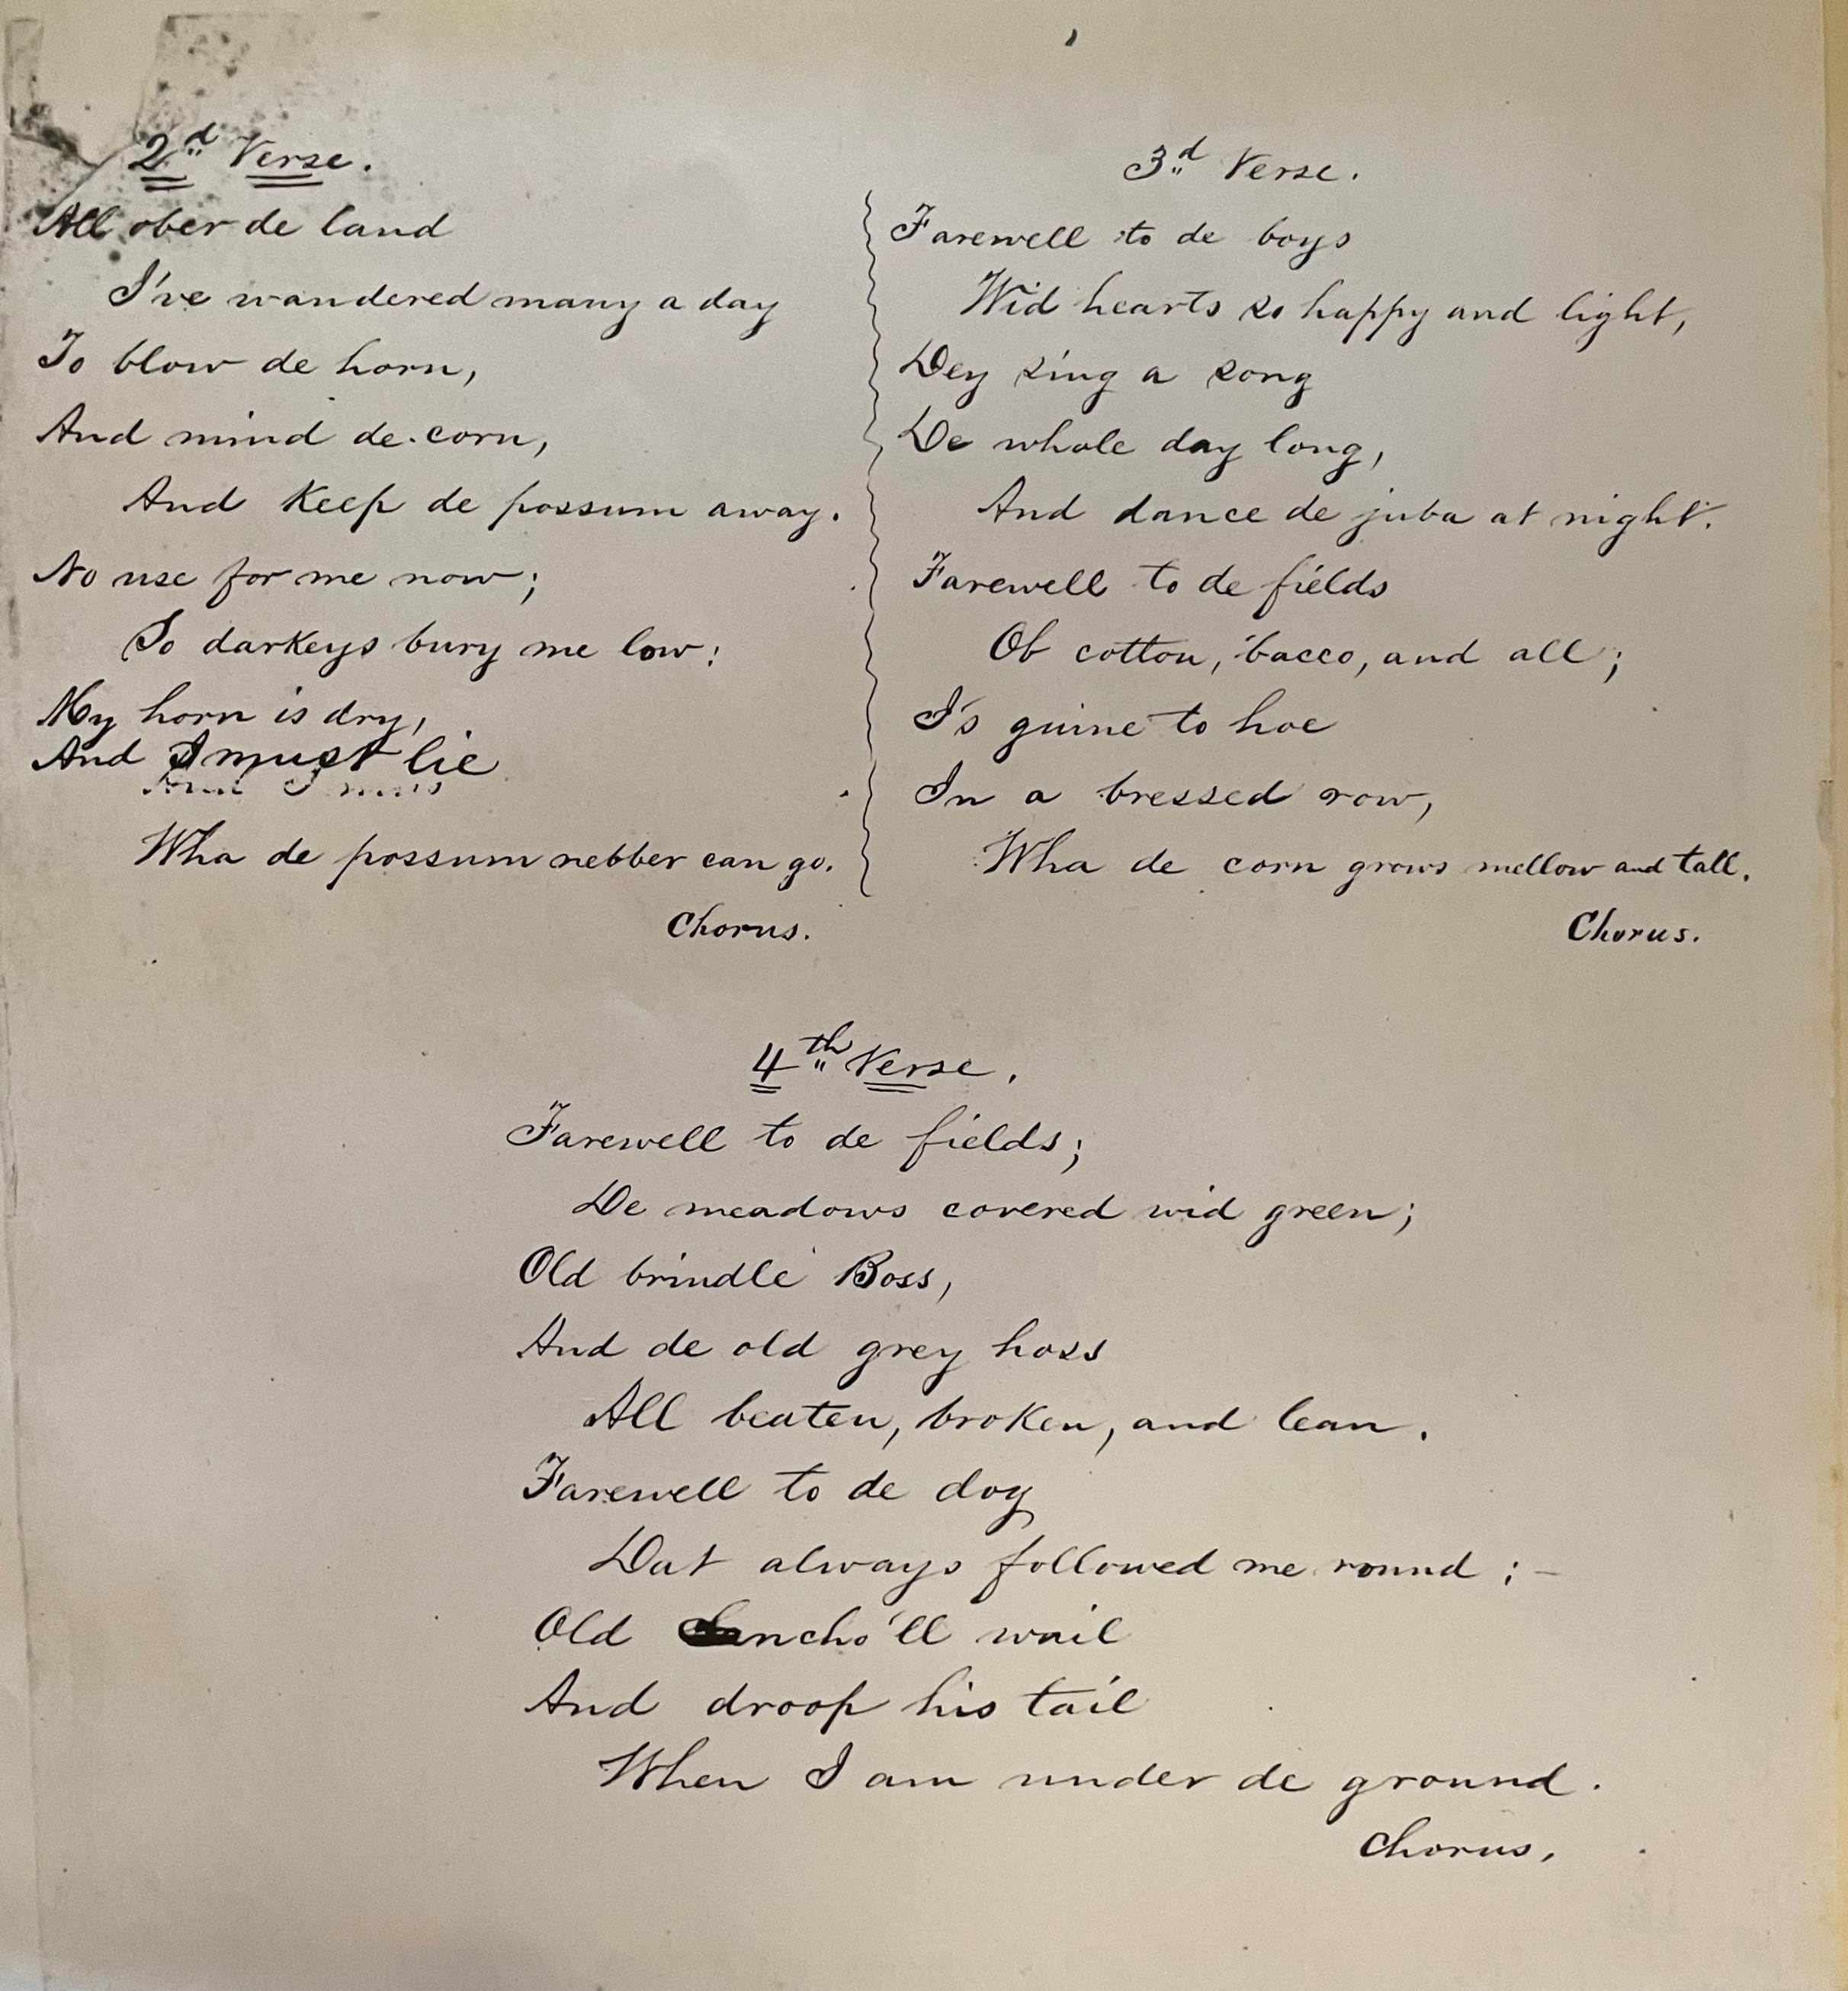 2d Verse.
All ober de land
I've wandered many a day
To blow de horn,
And mind de corn,
And Keep de possum away.
No use for me now;
So darkeys bury me low:
My horn is dry,
And I must lie
Wha de possum nebber can go.
Chorus.
3d Verse.
Farewell to de boys
Wid hearts so happy and light,
Dey sing a song
De whole day long,
And dance de juba at night.
Farewell to de fields
Ob cotton, 'bacco, and all;
I's guine to hoe
In a bressed row,
Wha de corn grows mellow and tall.
Chorus.
4th Verse.
Farewell to de fields;
De meadows covered wid green;
Old brindle Boss,
And de old grey hoss
All beaten, broken, and lean.
Farewell to de dog
Dat always followed me round;–
Old Sancho'll wail
And droop his tail
When I am under de ground.
Chorus.